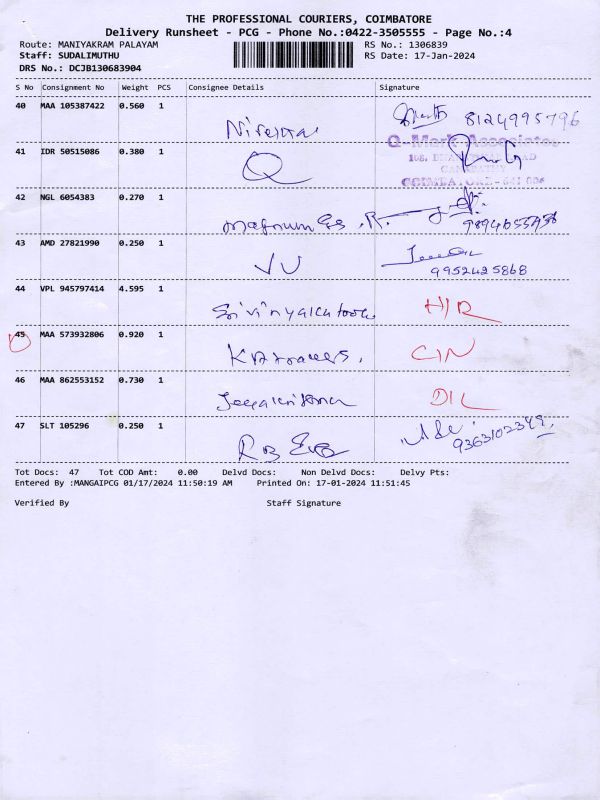 THE PROFESSIONAL COURIERS, COIMBATORE
Delivery Runsheet - PCG - Phone No.:0422-3505555 - Page No.:4
Route: MANIYAKRAM PALAYAM RS No.: 1306839
Staff: SUDALIMUTHU RS Date: 17-Jan-2024
DRS No.: DCJB130683904
S No Consignment No Weight PCS Consignee Details Signature
40 MAA 105387422 0.560 1
8124995796
Q-Mark Associates
41 IDR 50515086 0.380 1 Q
ROAD
COIMBATORE
42 NGL 6054383 0.270 1
magnum
43 AMD 27821990 0.250 1
VU 9952425868
44 VPL 945797414 4.595 1
H/R
45 MAA 573932806 0.920 1
C/N
46 MAA 862553152 0.730 1
D/L
47 SLT 105296 0.250 1
RB 9363102349
Tot Docs: 47 Tot COD Amt: 0.00 Delvd Docs: Non Delvd Docs: Delvy Pts:
Entered By :MANGAIPCG 01/17/2024 11:50:19 AM Printed On: 17-01-2024 11:51:45
Verified By Staff Signature